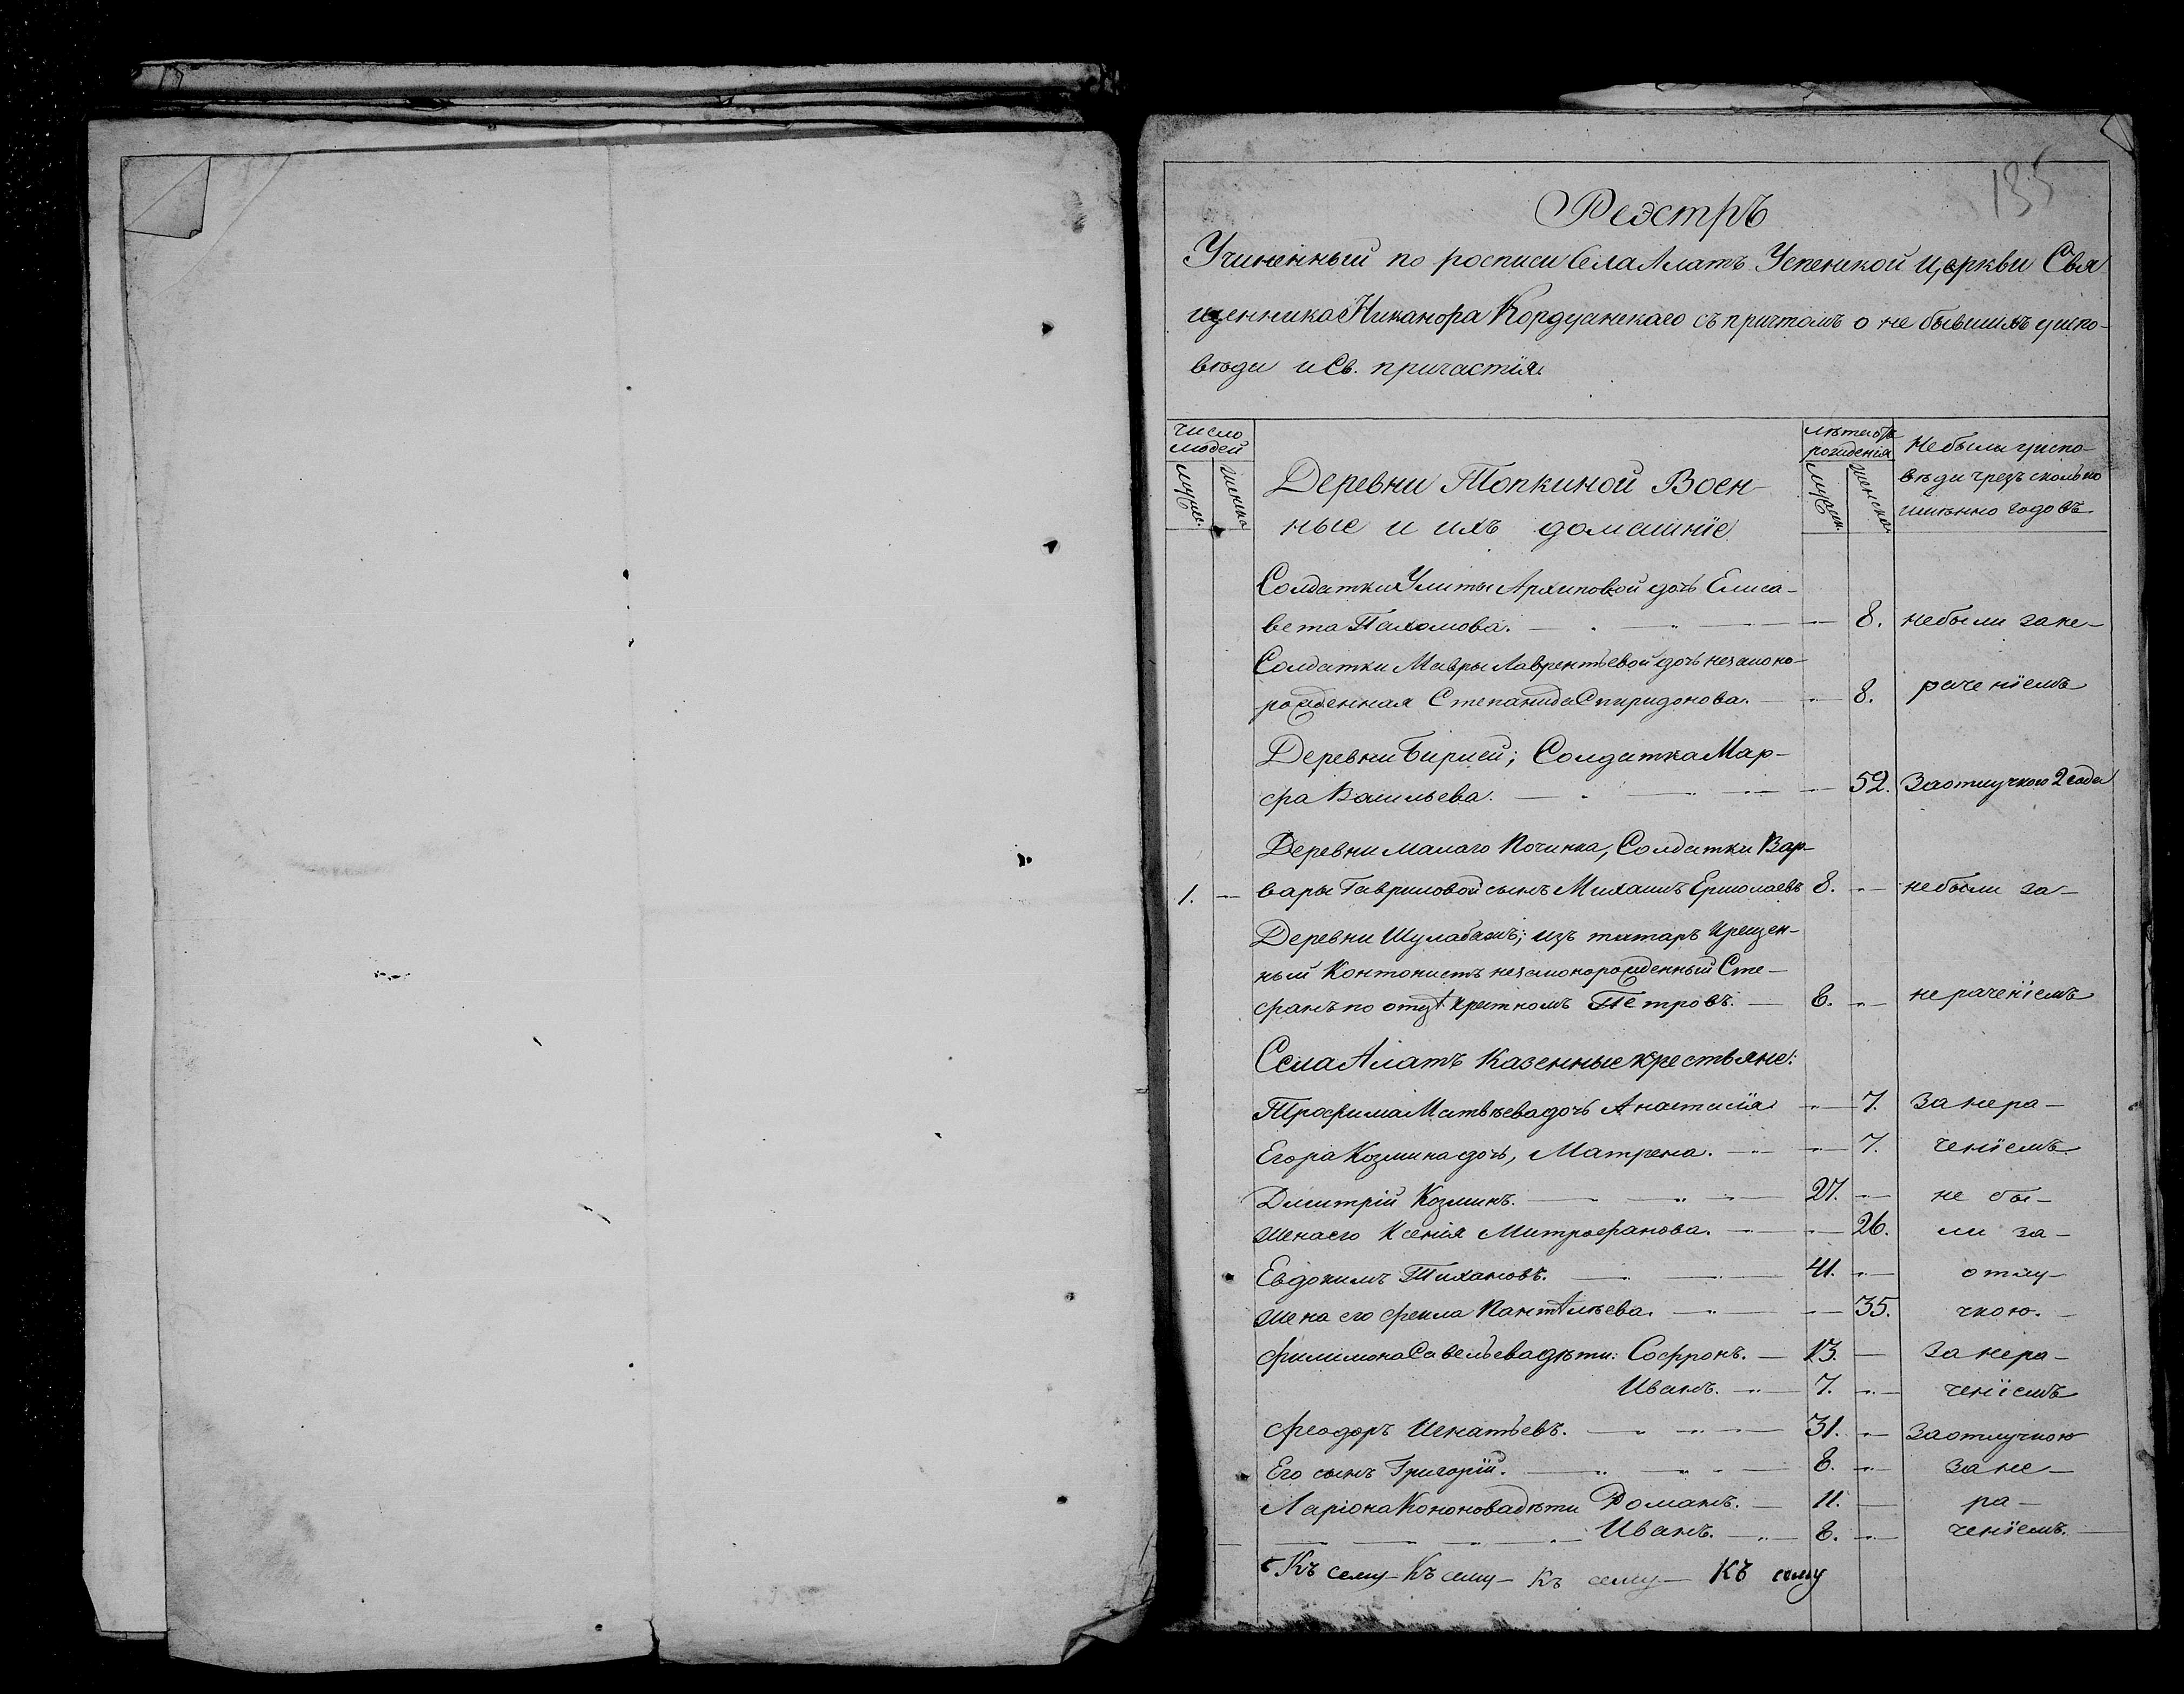 135
Реэстръ
Учиненный по росписи Села Алатъ Успенской церкви Свя
щенника Никанора Кордуанскаго съ причтомъ о не бывшихъ уиспо-
вѣди и Св. причастія.
число людей
лѣтъ отъ рожденія
Небыли уиспо-
вѣди чрезъ сколько
имянно годовъ
мужес. женска
мужеск. женска
Деревни Топкиной Воен-
ные и ихъ домашніе
Солдатки Улиты Архиповой дочь Елиса-
вета Пахомова. 8. небыли зане-
Солдатки Мавры Лаврентьевой дочь незаконо-
рожденная Степанида Спиридонова. 8. раченіемъ
Деревни Бирией; Солдатка Мар-
фа Васильева. 52. Заотлучкою 2 года
Деревни малаго Починка, Солдатки Вар-
1. вары Гавриловой сынъ Михаилъ Ермолаевъ 8. небыли за-
Деревни Шулабашъ; изъ татаръ крещен-
ный Контонистъ незаконорожденный Сте-
фанъ по отцѣ крестномъ Петровъ. 8. нераченіемъ
Села Алатъ Казенные крестьяне:
Трофима Матвѣева дочь Анастасія 7. Занера-
Егора Козмина дочь, Матрена. 7. ченіемъ
Дмитрій Козминъ. 27. не бы-
Жена его Ксенія Митрофанова. 26. ли за-
Евдокимъ Тихановъ. 41. отлу-
Жена его Фекла Пантѣлѣева. 35. чкою.
Филимона Савельева дѣти: Софронъ. 13. Занера-
Иванъ. 7. ченіемъ
Феодоръ Игнатьевъ. 31. Заотлучкою
Его сынъ Григорій. 8. зане-
Ларіона Кононова дѣти Романъ. 11. ра-
Иванъ. 8. ченіемъ.
Къ сему - Къ сему - Къ сему - Къ сему